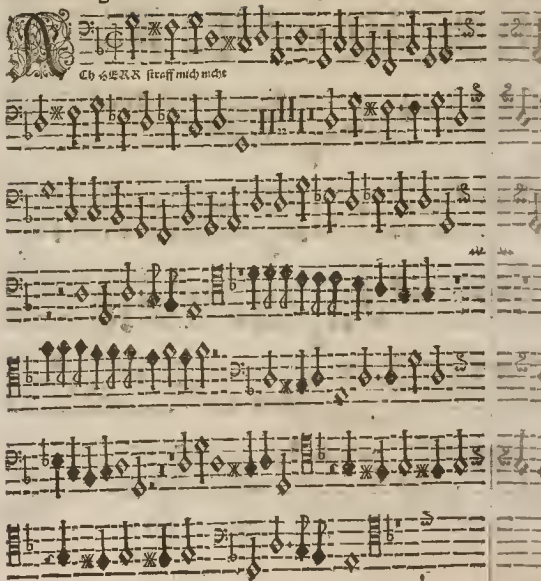 ACh HERR straff mich nicht
22